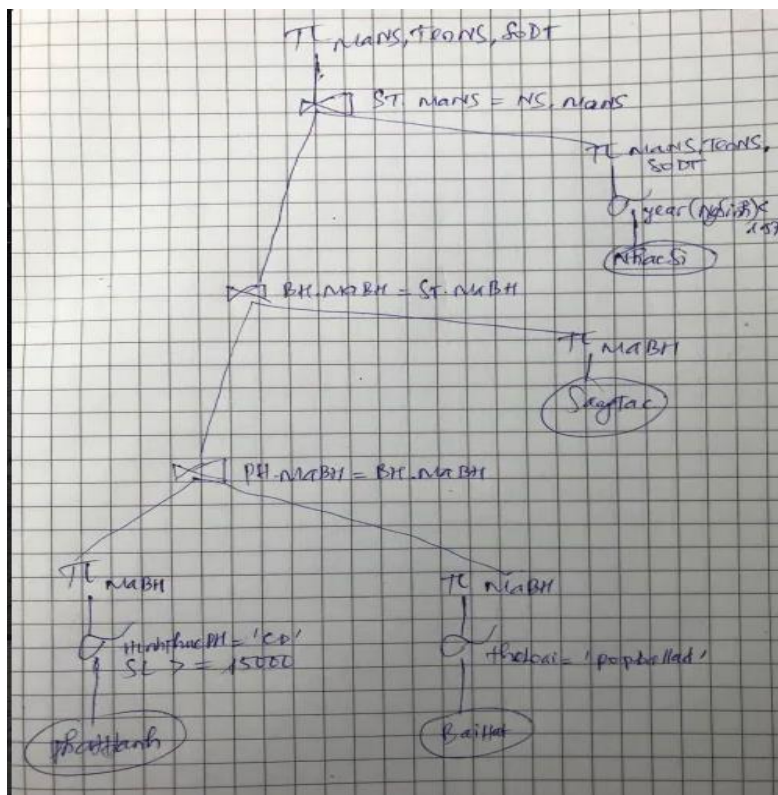 π MaNS, TenNS, SoDT
ST. MaNS = NS. MaNS
π MaNS, TenNS,
SoDT
σ year(NgSinh) <
NhacSi
BH.MaBH = ST.MaBH
π MaBH
SangTac
PH.MaBH = BH.MaBH
π MaBH
π MaBH
σ HinhthucPH = 'CD'
SL >= 15000
σ theloai = 'popballad'
phatHanh
BaiHat